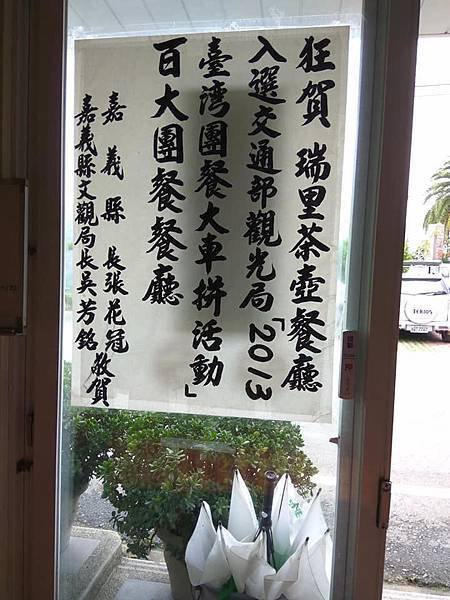 狂賀 瑞里茶壺餐廳
入選交通部觀光局「2013
臺灣團餐大車拼活動」
百大團餐餐廳
嘉義縣 長張花冠
嘉義縣文觀局長吳芳銘
敬賀
TERIOS